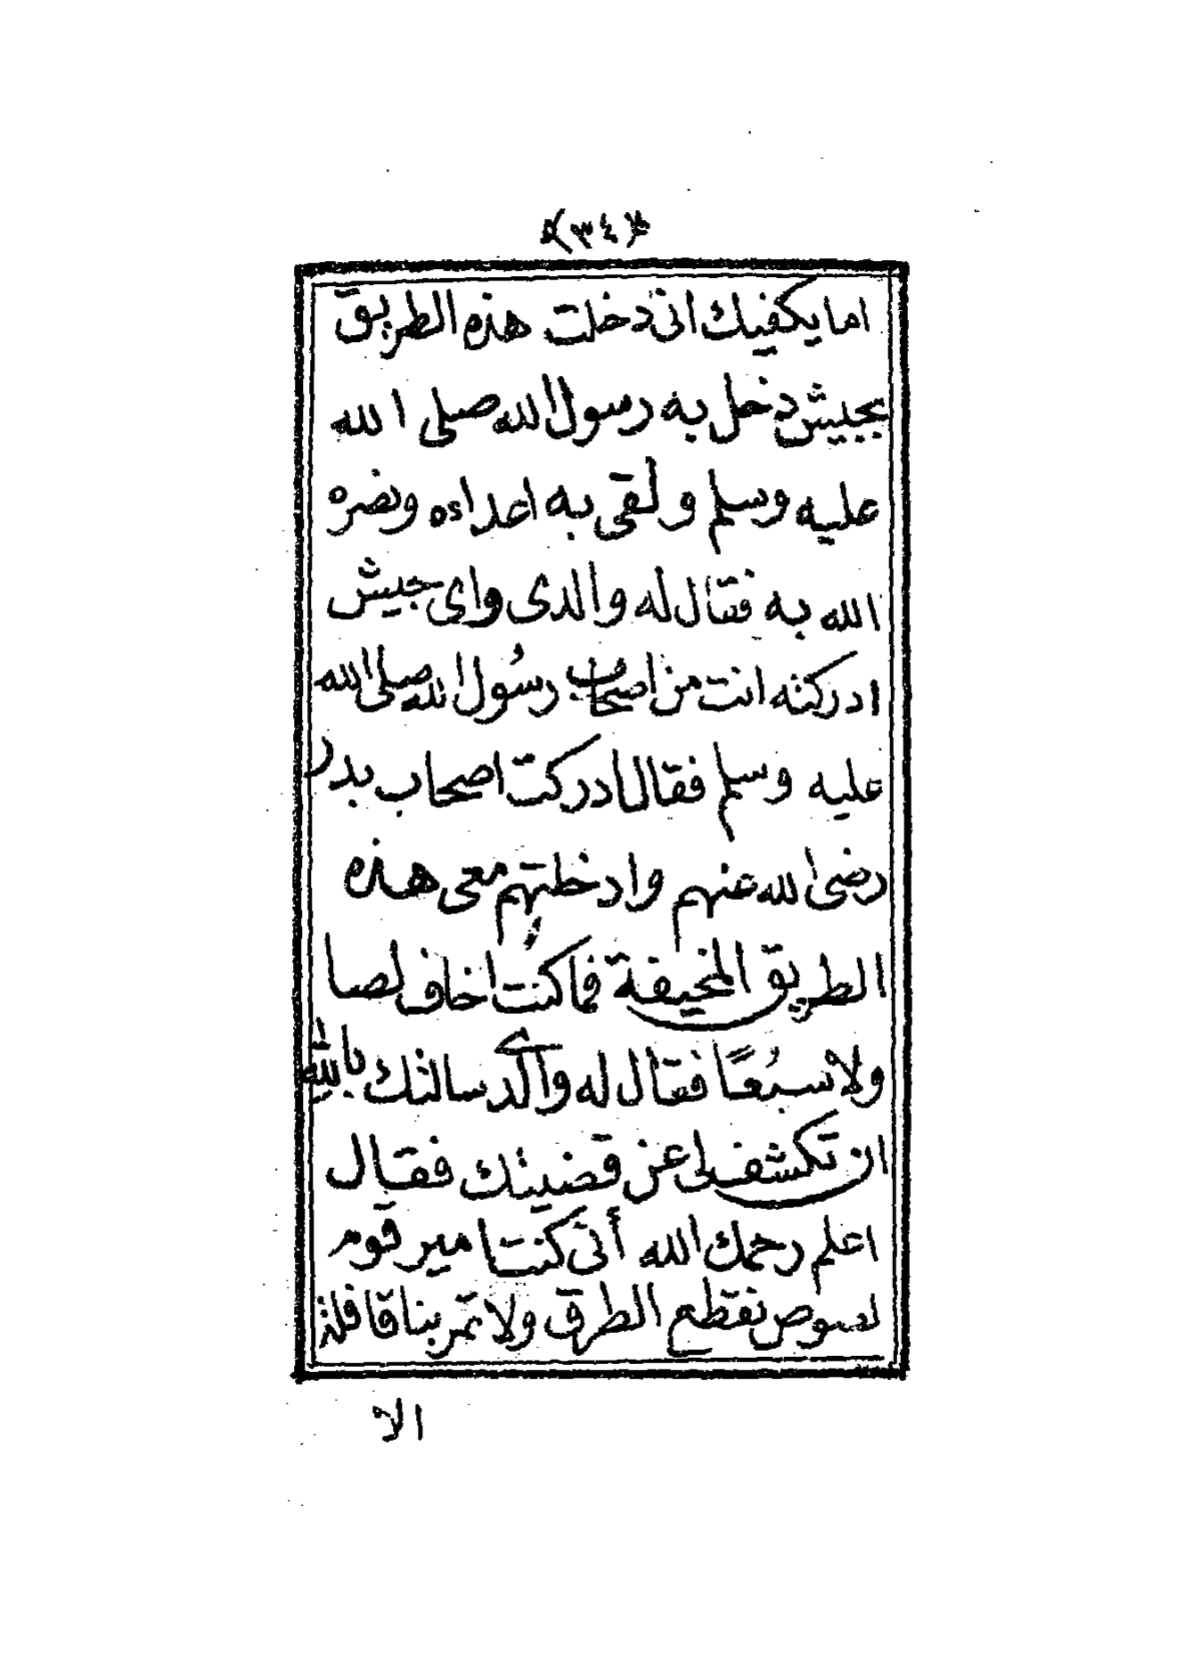 ﴿٣٤﴾
اما يكفيك انى دخلت هذه الطريق
بجيش دخل به رسول الله صلى الله
عليه وسلم ولقى به اعداءه ونصره
الله به فقال له والدى واى جيش
ادركته انت من اصحاب رسُول الله صلى الله
عليه وسلم فقال ادركت اصحاب بدر
رضى الله عنهم وادخلتهم معى هذه
الطريق المخيفة فما كنت اخاف لصا
ولا سبُعًا فقال له والدى سالتك بالله
ان تكشف لى عن قضيتك فقال
اعلم رحمك الله أنى كنت امير قوم
لصوص نقطع الطرق ولا تمر بنا قافلة
الا